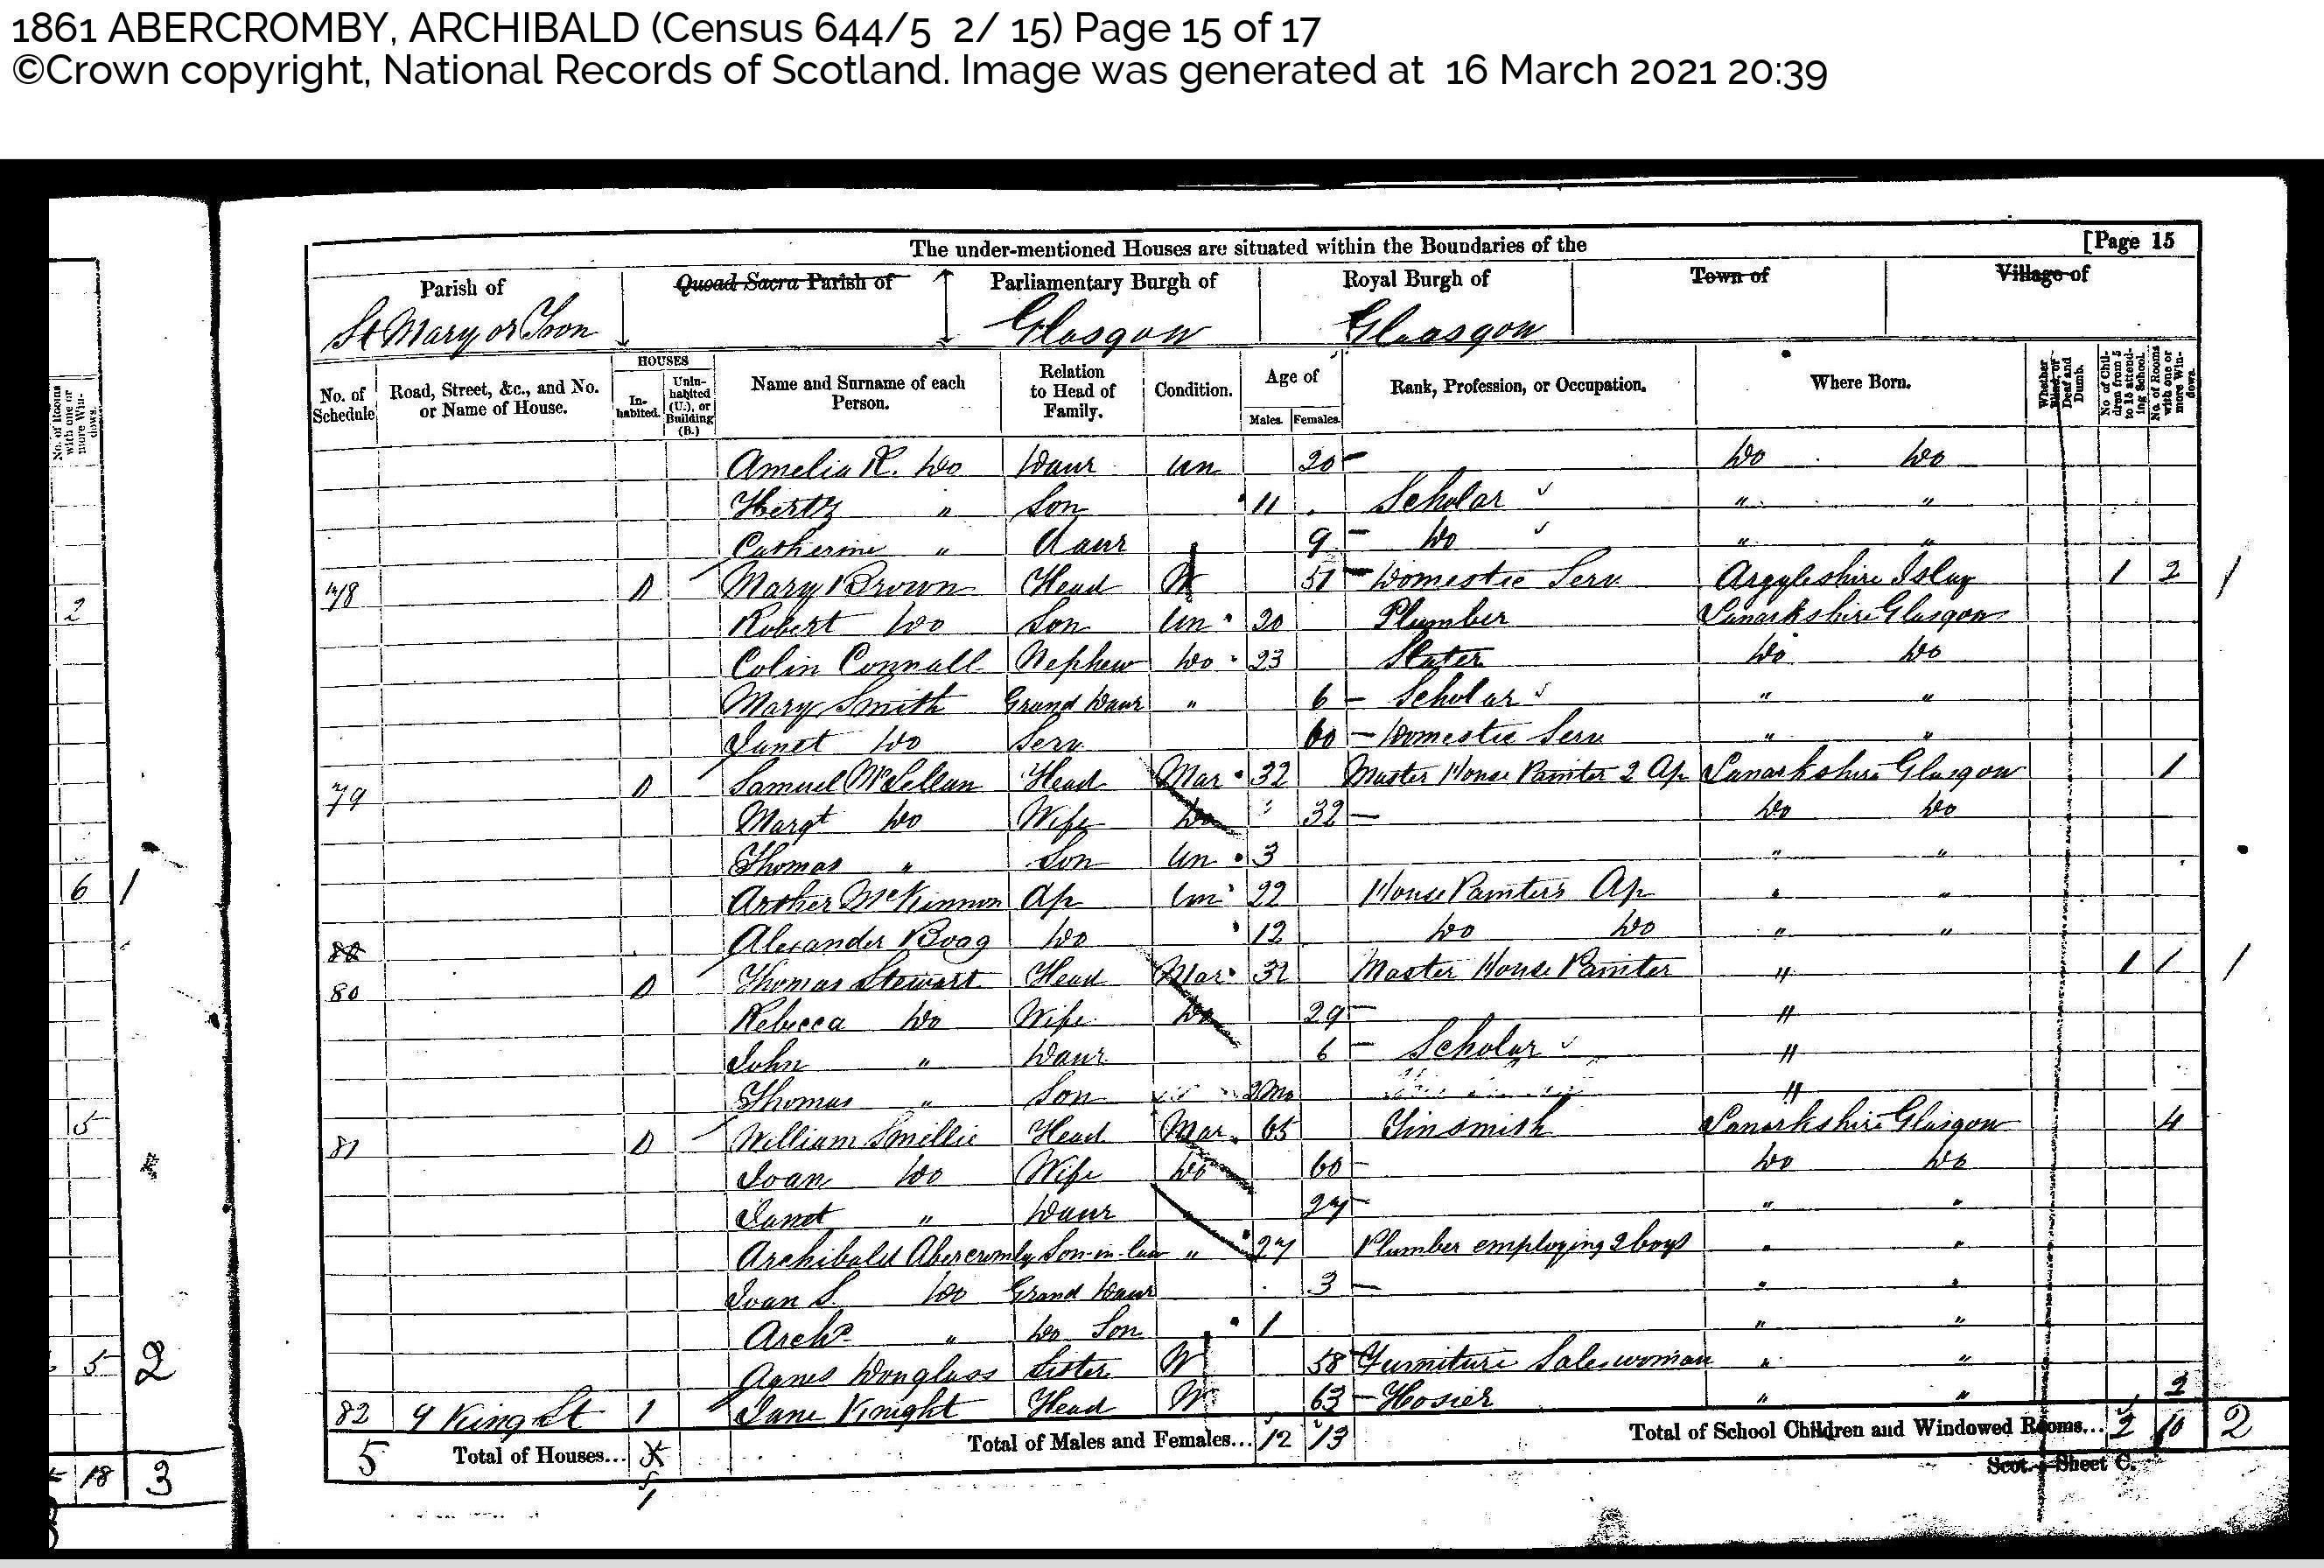 1861 ABERCROMBY, ARCHIBALD (Census 644/5 2/ 15) Page 15 of 17
©Crown copyright, National Records of Scotland. Image was generated at 16 March 2021 20:39
The under-mentioned Houses are situated within the Boundaries of the [Page 15
Parish of Quoad Sacra Parish of Parliamentary Burgh of Royal Burgh of Town of Village of
St Mary or Tron Glasgow Glasgow
No. of Schedule Road, Street, &c., and No. or Name of House. HOUSES Inhabited. Uninhabited (U.), or Building (B.) Name and Surname of each Person. Relation to Head of Family. Condition. Age of Males. Females. Rank, Profession, or Occupation. Where Born. Whether Blind, or Deaf and Dumb. No of Children from 5 to 15 attending School. No. of Rooms with one or more Windows.
Amelia R. Do Daur Un 20 Do Do
" Son 11 Scholar " "
Catherine " Daur 9 Do " "
78 Mary Brown Head W 51 Domestic Serv Argyleshire Islay 1 2
Robert Do Son Un 20 Plumber Lanarkshire Glasgow
Colin Connall Nephew Do 23 Slater Do Do
Mary Smith Grand Daur " 6 Scholar " "
Janet Do Serv 60 Domestic Serv " "
79 Samuel McLellan Head Mar 32 Master House Painter 2 Ap Lanarkshire Glasgow 1
Margt Do Wife Do 32 Do Do
Thomas " Son Un 3 " "
Archer McKinnon Ap Un 22 House Painters Ap " "
Alexander Boag Do 12 Do Do " "
80 Thomas Stewart Head Mar 32 Master House Painter " 1 1
Rebecca Do Wife Do 29 "
John " Daur 6 Scholar "
Thomas " Son 2 Mo "
81 William Smillie Head Mar 65 Tinsmith Lanarkshire Glasgow 4
Joan Do Wife Do 60 Do Do
Janet " Daur " 27 " "
Archibald Abercromby Son-in-law " 27 Plumber employing 2 boys " "
Joan S. Do Grand Daur 3 " "
Archd " Do Son 1 " "
Agnes Douglass Sister W 58 Furniture Saleswoman " "
82 9 King St 1 Jane Knight Head W 63 Hosier " " 2
5 Total of Houses... Total of Males and Females... 12 13 Total of School Children and Windowed Rooms... 2 10 2
Scot.—Sheet C.
No. of Rooms with one or more Windows.
2
6 1
5
5 2
18 3